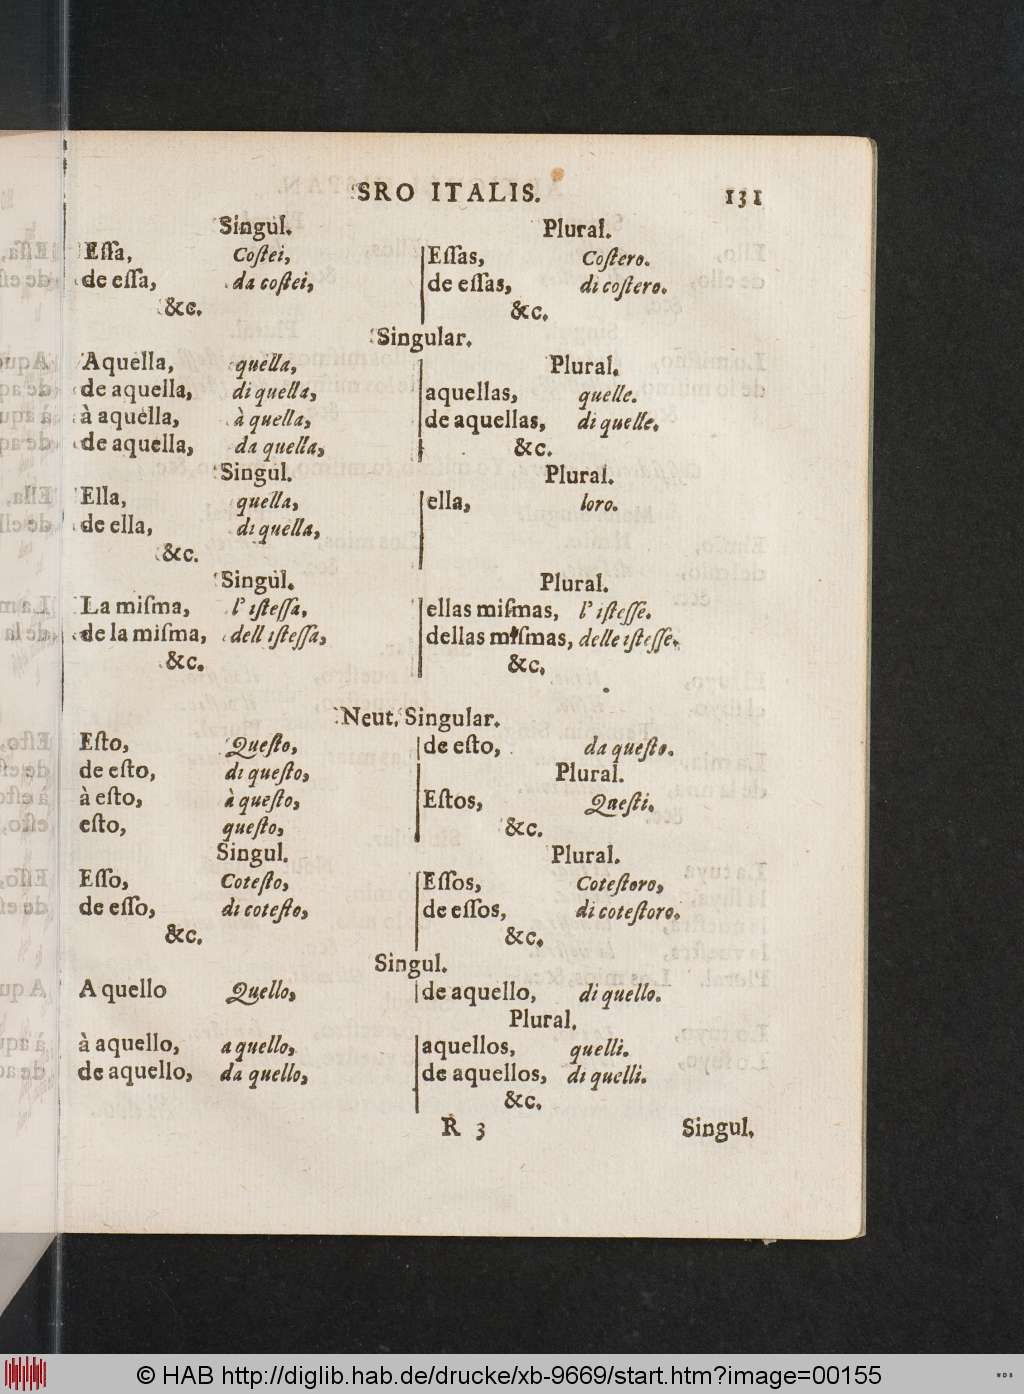 SRO ITALIS. 131
Singul. Plural.
Eſſa, Coſtei, Eſſas, Coſtero.
de eſſa, da coſtei, de eſſas, di coſtero.
&c. &c.
Singular.
Aquella, quella, Plural.
de aquella, di quella, aquellas, quelle.
à aquella, à quella, de aquellas, di quelle.
de aquella, da quella, &c.
Singul. Plural.
Ella, quella, ella, loro.
de ella, di quella,
&c.
Singul. Plural.
La miſma, l' iſteſſa, ellas miſmas, l' iſteſſe.
de la miſma, dell iſteſſa, dellas miſmas, delle iſteſſe.
&c. &c.
Neut. Singular.
Eſto, Queſto, de eſto, da queſto.
de eſto, di queſto, Plural.
à eſto, à queſto, Eſtos, Queſti.
eſto, queſto, &c.
Singul. Plural.
Eſſo, Coteſto, Eſſos, Coteſtoro,
de eſſo, di coteſto, de eſſos, di coteſtoro.
&c. &c.
Singul.
A quello Quello, de aquello, di quello.
Plural.
à aquello, a quello, aquellos, quelli.
de aquello, da quello, de aquellos, di quelli.
&c.
R 3 Singul.
© HAB http://diglib.hab.de/drucke/xb-9669/start.htm?image=00155